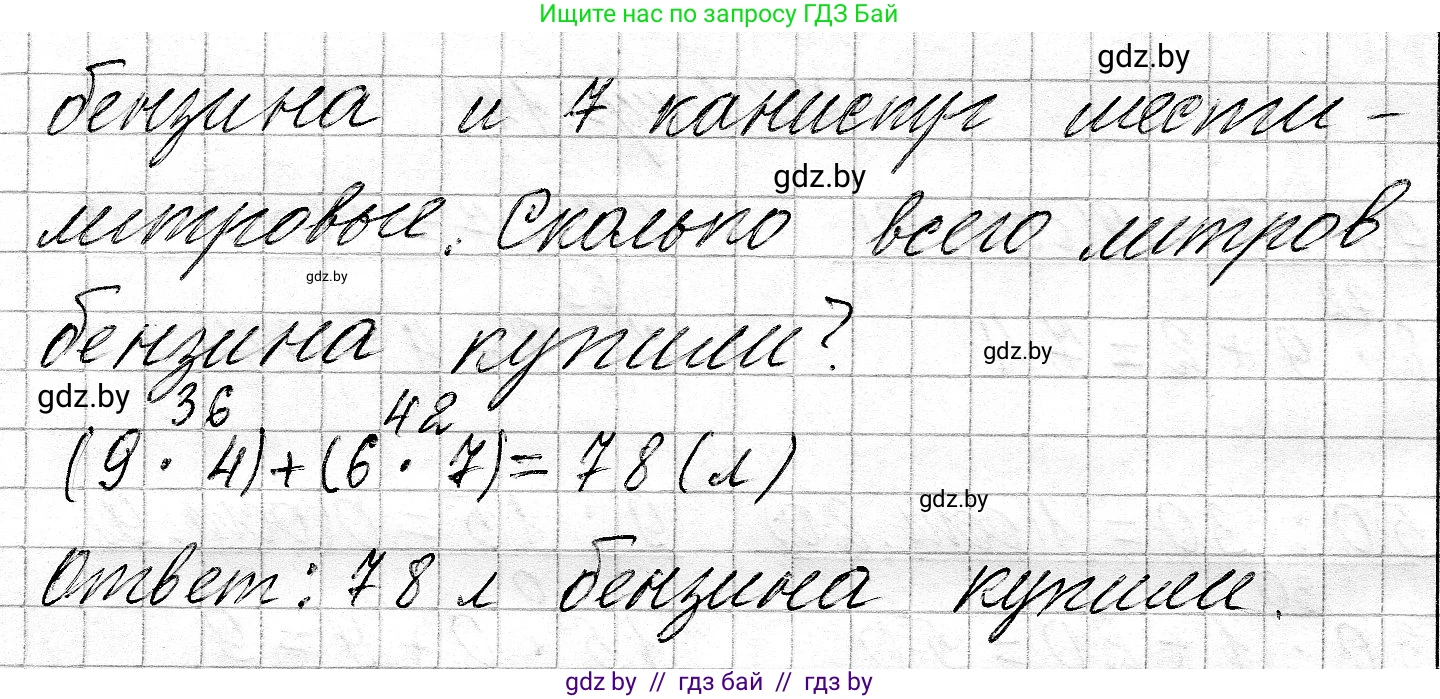 Ищите нас по запросу ГДЗ Бай
gdz.by
бензина и 7 канистр шести-
gdz.by
литровые. Сколько всего литров
gdz.by
бензина купили?
gdz.by
gdz.by
36 42
(9 · 4)+(6 · 7)= 78 (л)
gdz.by
Ответ: 78 л бензина купили.
gdz.by // гдз бай // гдз by